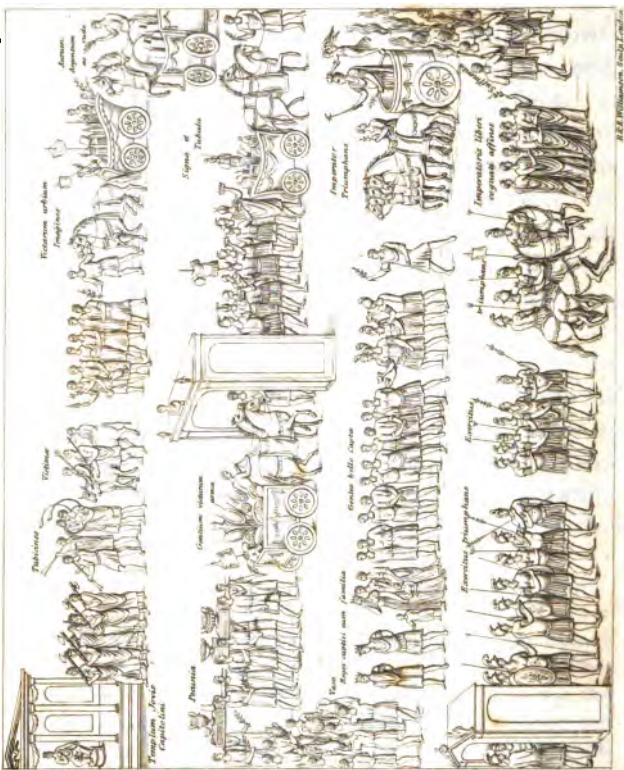 Templum Jovis
Capitolini
Tubicines
Victimæ
Victarum urbium
Imagines
Aurum
Argentum
Pecunia
Gentium victarum
arma
Signa et
Tabulæ
Vasa
Reges captivi cum familia
Gentes bello captæ
Imperator
Triumphans
Exercitus triumphans
Exercitus
triumphans
Imperatoris liberi
cognati affines
Williamson Sculp.